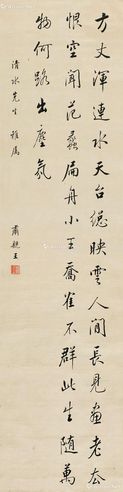 方丈渾連水天台總映雲人間長見畫老去
恨空聞范蠡扁舟小王喬隺不群此生隨萬
物何路出塵氛
清水先生 雅屬
肅親王